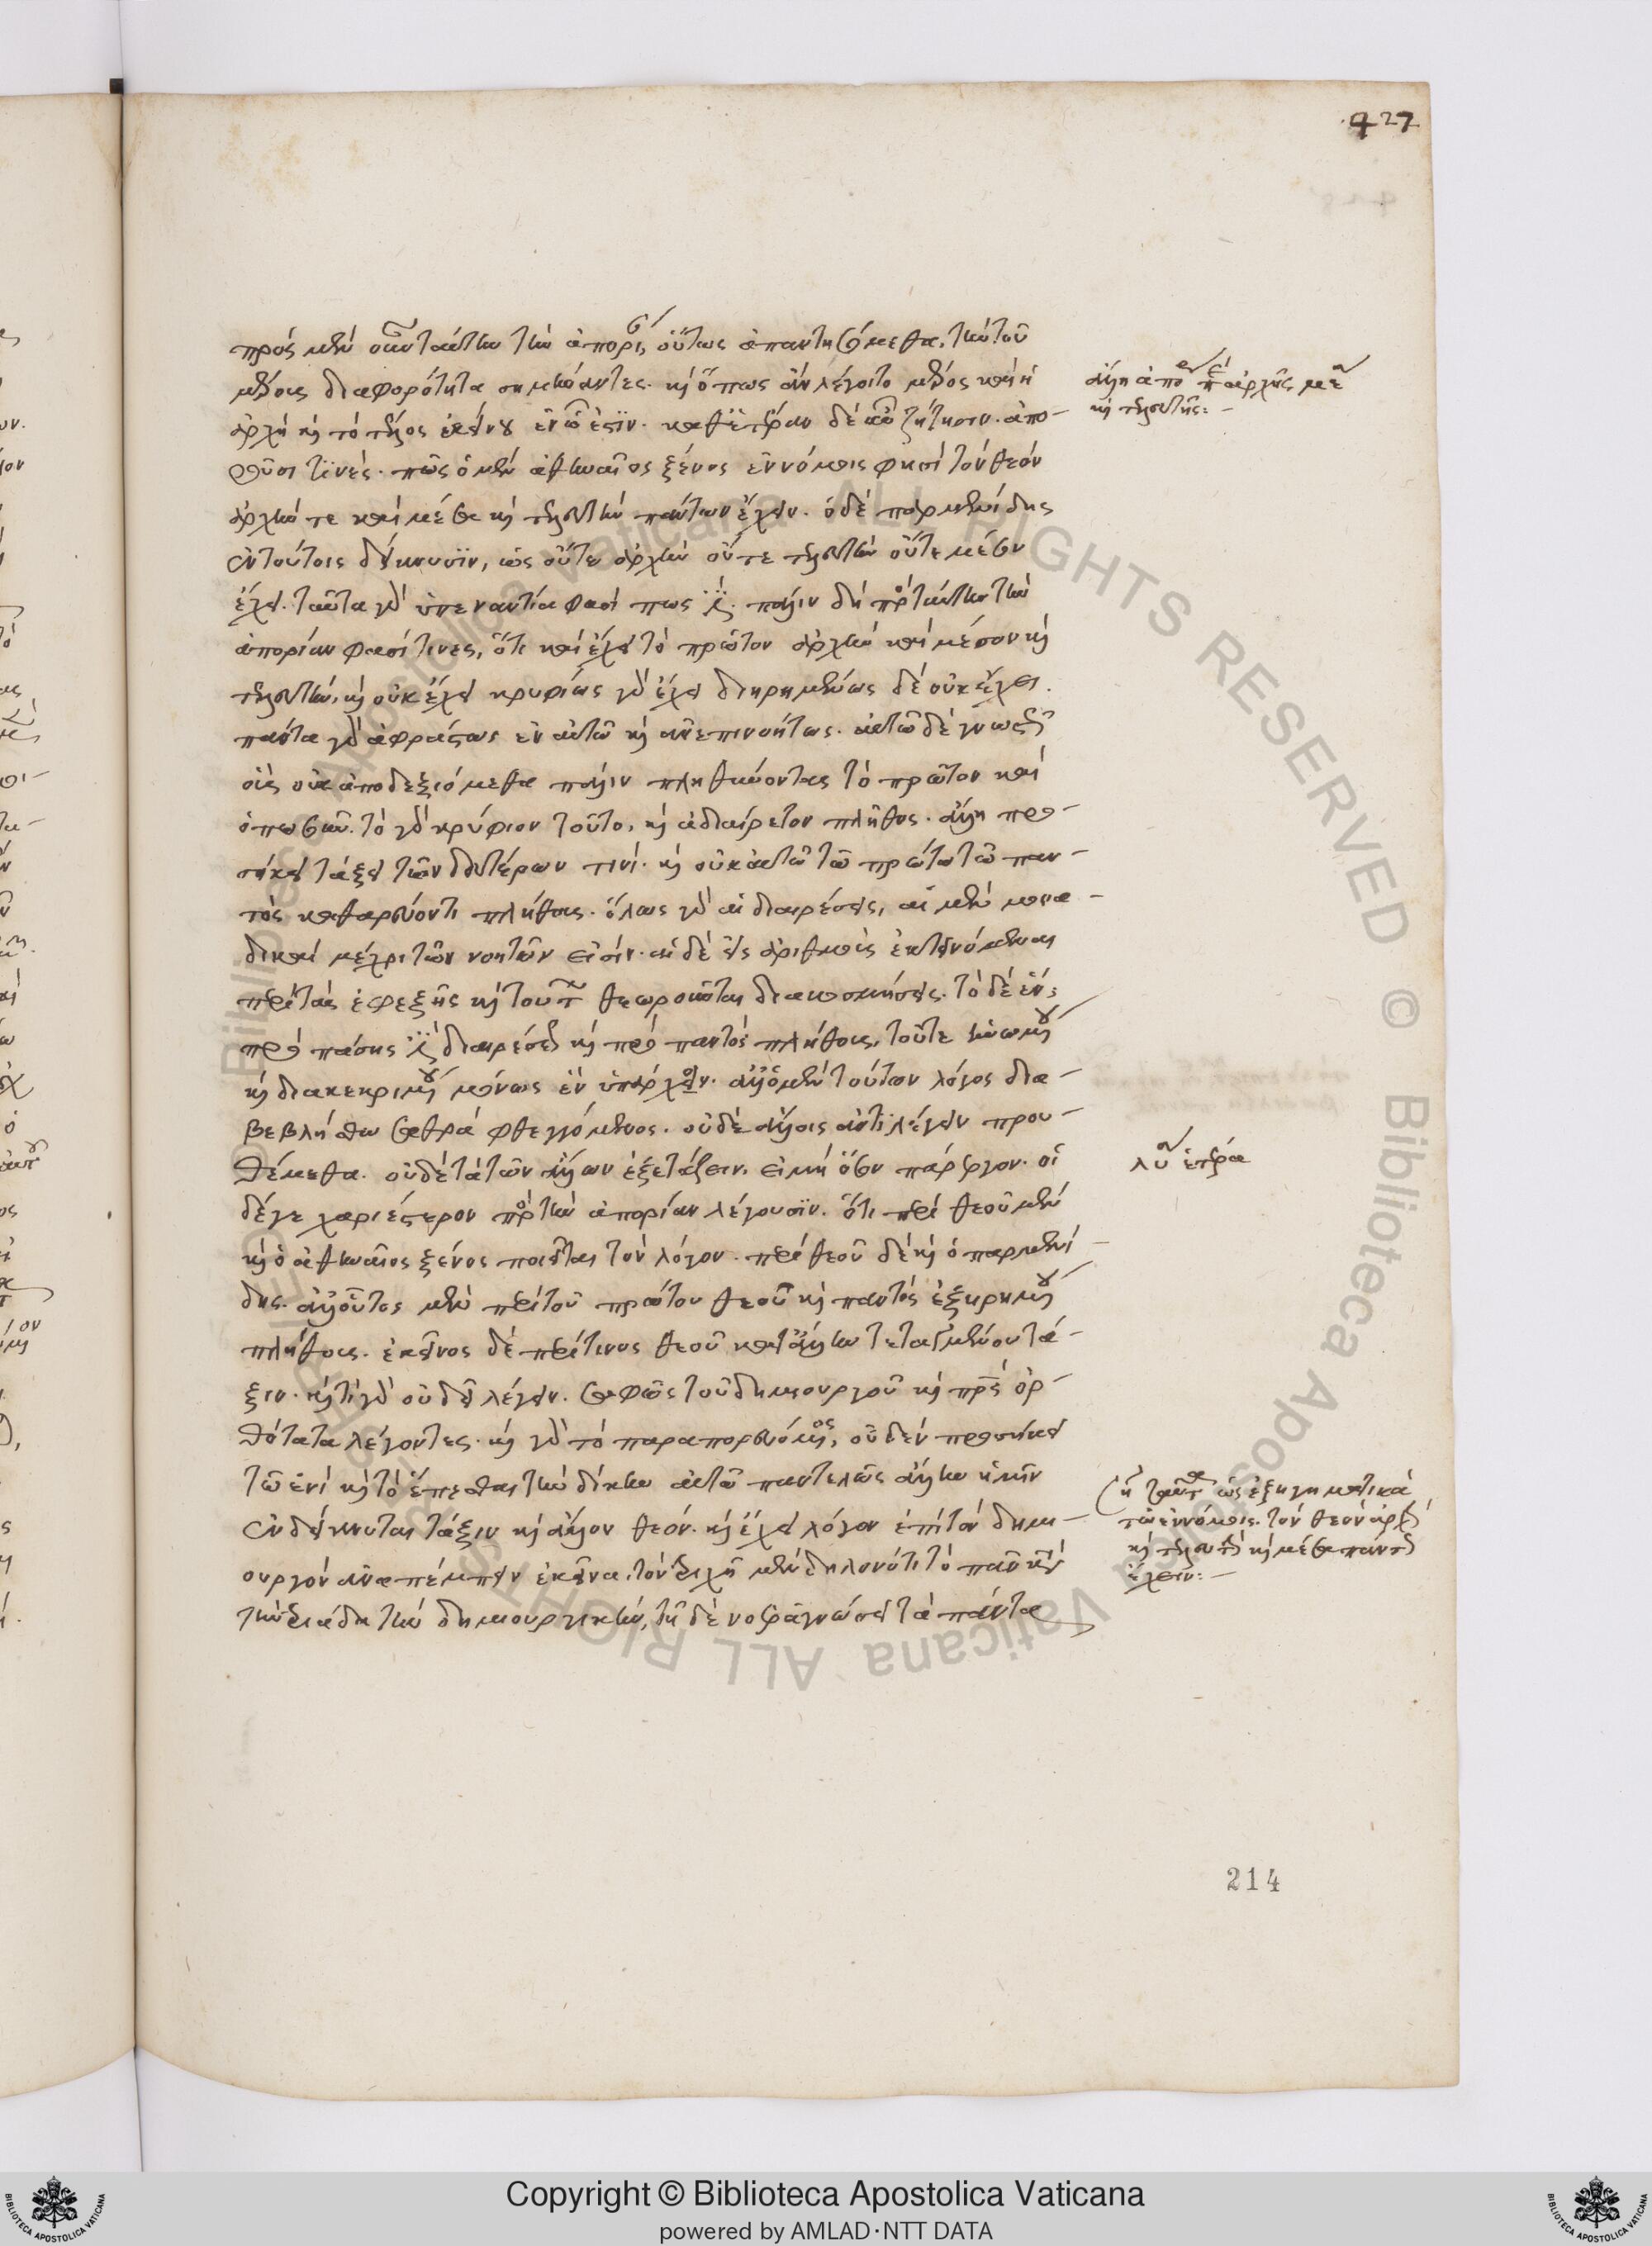 427
πρὸς μὲν οὖν ταύτην τὴν ἀπορίαν, οὕτως ἀπαντησόμεθα, τὴν τοῦ
μέρους διαφορότητα σημήναντες. καὶ ὅπως ἂν λέγοιτο μέρος καὶ ἡ
ἀρχὴ καὶ τὸ τέλος ἐκείνου ἐν ᾧ ἐστιν. καθ' ἑτέραν δὲ αὖ ζήτησιν. ἀπο-
ροῦσι τινὲς. πῶς ὁ μὲν ἀθηναῖος ξένος ἐν νόμοις φησὶ τὸν θεὸν
ἀρχήν τε καὶ μέσα καὶ τελευτὴν πάντων ἔχειν. ὁ δὲ παρμενίδης
ἐν τούτοις δείκνυσιν, ὡς οὔτε ἀρχὴν οὔτε τελευτὴν οὔτε μέσον
ἔχει. ταῦτα γὰρ ὑπεναντία φασί πως εἶναι. πάλιν δὴ πρὸς ταύτην τὴν
ἀπορίαν φασί τινες, ὅτι καὶ ἔχει τὸ πρῶτον ἀρχὴν καὶ μέσον καὶ
τελευτήν, καὶ οὐκ ἔχει κρυφίως γὰρ ἔχει διῃρημένως δὲ οὐκ ἔχει.
πάντα γὰρ ἀφράστως ἐν αὐτῷ καὶ ἀνεπινοήτως. αὐτῷ δὲ γνωστῶς
οὓς οὐκ ἀποδεξιόμεθα πάλιν πληθύοντας τὸ πρῶτον καὶ
ὁπωσοῦν. τὸ γὰρ κρύφιον τοῦτο, καὶ ἀδιαίρετον πλῆθος. ἄλλῃ προ-
σήκει τάξει τῶν δευτέρων τινί. καὶ οὐκ αὐτῷ τῷ πρώτῳ τῷ παν-
τὸς καθαρεύοντι πλήθους. ὅλως γὰρ αἱ διαιρέσεις, αἱ μὲν μονα-
δικαὶ μέχρι τῶν νοητῶν εἰσίν. αἱ δὲ εἰς ἀριθμοὺς ἐκτεινόμεναι
περὶ τὰς ἐφεξῆς καὶ τούτων θεωροῦνται διακοσμήσεις. τὸ δὲ ἓν,
πρὸ πάσης ἐστὶ διαιρέσεως καὶ πρὸ παντὸς πλήθους, τοῦ τε ἡνωμένου
καὶ διακεκριμένου μόνως ἓν ὑπάρχον. ἀλλ' ὁ μὲν τούτων λόγος δια-
βεβλήσθω σαθρὰ φθεγγόμενος. οὐδὲ ἄλλοις ἀντιλέγειν πρου-
θέμεθα. οὐδὲ τὰ τῶν ἄλλων ἐξετάζειν, εἰ μὴ ὅσον πάρεργον. οἱ
δέ γε χαριέστερον πρὸς τὴν ἀπορίαν λέγουσιν. ὅτι περὶ θεοῦ μὲν
καὶ ὁ ἀθηναῖος ξένος ποιεῖται τὸν λόγον. περὶ θεοῦ δὲ καὶ ὁ παρμενί-
δης. ἀλλ' οὗτος μὲν περὶ τοῦ πρώτου θεοῦ καὶ παντὸς ἐξῃρημένου
πλήθους. ἐκεῖνος δὲ περὶ τινος θεοῦ κατ' ἄλλην τεταγμένου τά-
ξιν. καὶ τί γὰρ οὐ δεῖ λέγειν. σαφῶς τοῦ δημιουργοῦ καὶ πατρὸς ὀρ-
θότατα λέγοντες. καὶ γὰρ τὸ παραπορευόμενος, οὐδὲν προσήκει
τῷ ἑνὶ καὶ τὸ ἕπεσθαι τὴν δίκην αὐτῷ παντελῶς ἄλλην ἡμῖν
ἐνδείκνυται τάξιν καὶ ἄλλον θεόν. καὶ ἔχει λόγον ἐπὶ τὸν δημι-
ουργὸν ἀναπέμπειν ἐκεῖνα, τὸν διχῇ μὲν δηλονότι τὸ πᾶν κατὰ
τὴν δυάδα τὴν δημιουργικήν, τῇ δὲ νοερᾷ γνώσει τὰ πάντα
καὶ τελευτῆς:-
λύσις ἑτέρα
ἢ ταῦτα ὡς ἐξηγηματικὰ
τῶν ἐν νόμοις. τὸν θεὸν ἀρχὴν
καὶ τελευτὴν καὶ μέσα πάντων
ἔχειν:-
214